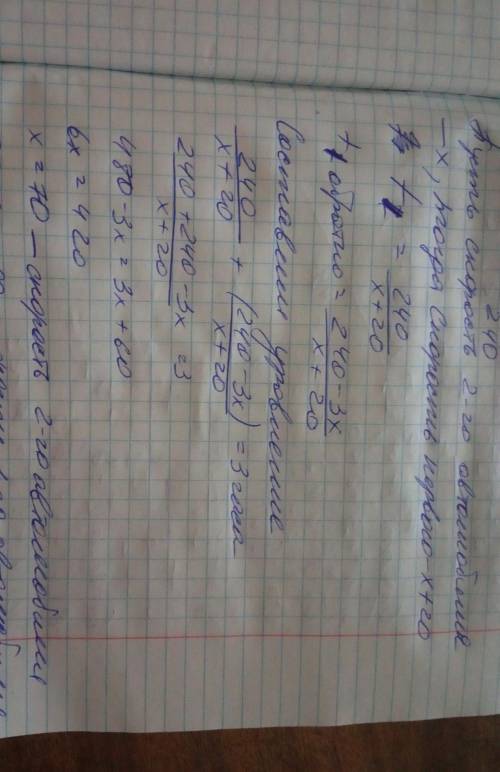 240
Пусть скорость 2-го автомобиля
– х, тогда скорость первого – х+20
t₁ = 240 / х+20
t₁ обратно = 240 – 3х / х + 20
Составим уравнение
240 / х+20 + (240 – 3х / х + 20) = 3 часа
240 + 240 – 3х / х + 20 = 3
480 – 3х = 3х + 60
6х = 420
х = 70 – скорость 2-го автомобиля